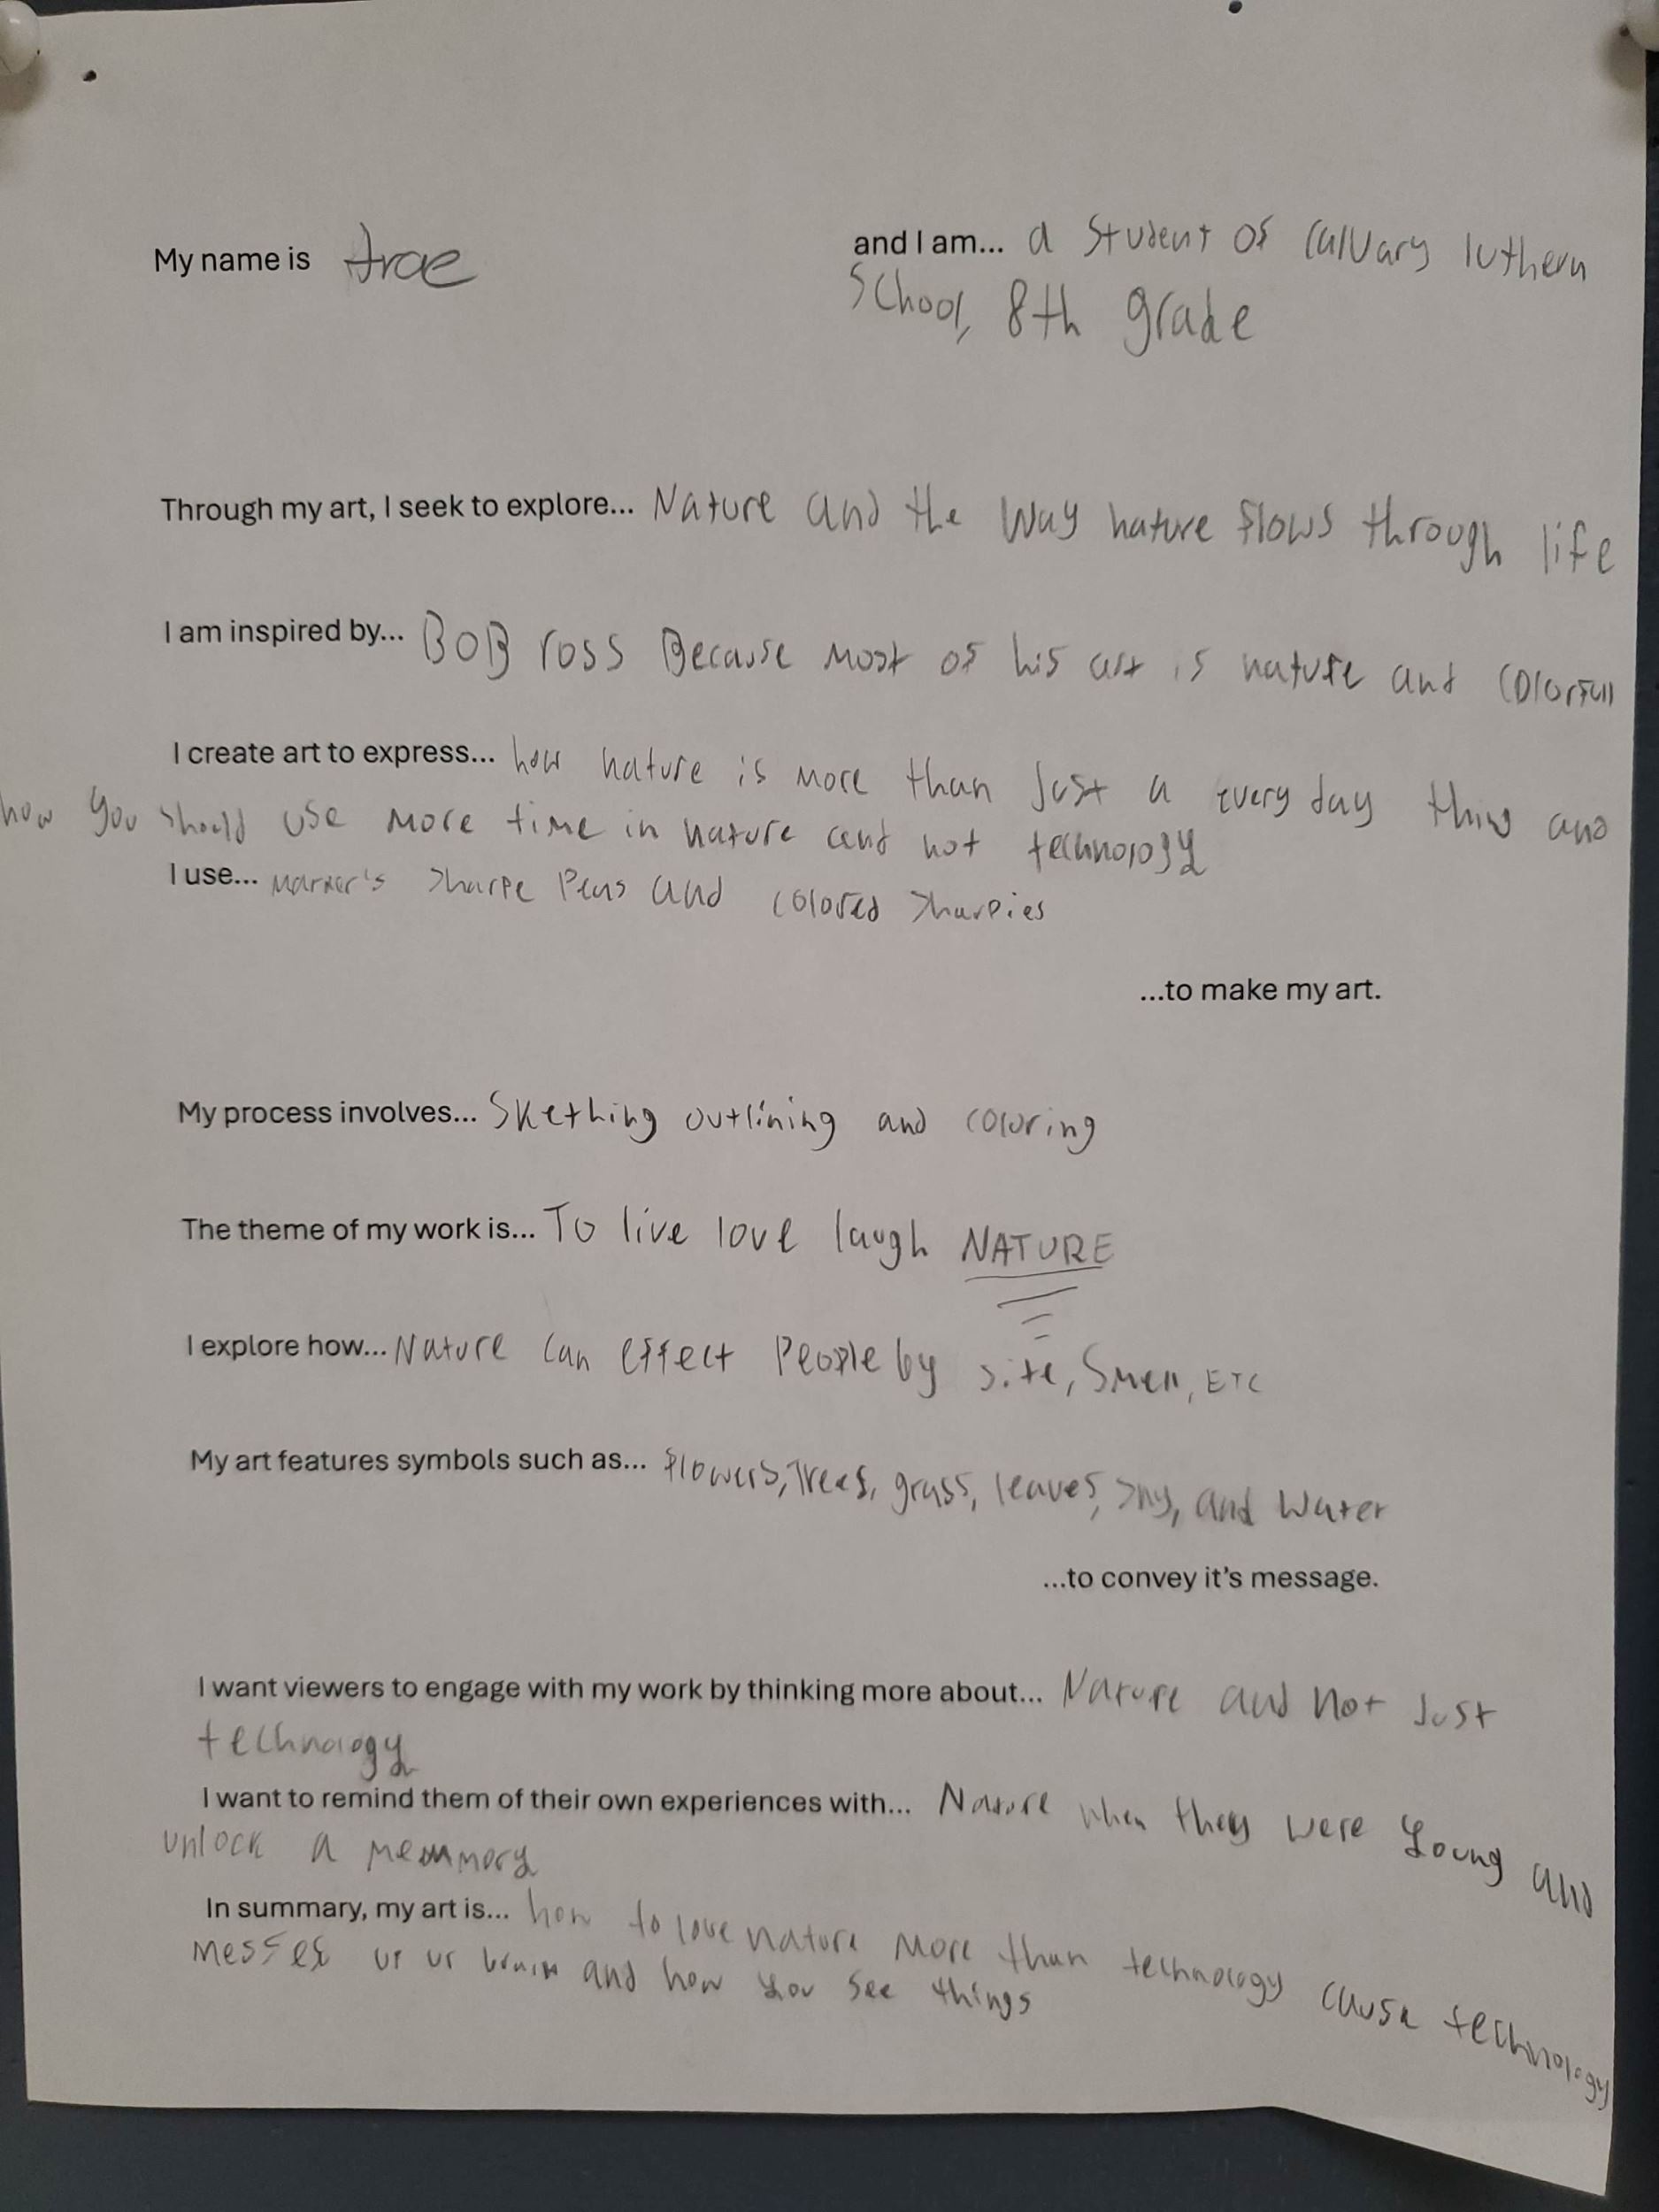 My name is trae and I am... a student of Calvary luthern
school, 8th grade
Through my art, I seek to explore... Nature and the way nature flows through life
I am inspired by... BOB ross Because most of his art is nature and colorfull
I create art to express... how nature is more than Just a every day thing and
how you should use more time in nature and not technology
I use... Marker's sharpe Pens and colored sharpies
...to make my art.
My process involves... Skething outlining and coloring
The theme of my work is... To live love laugh NATURE
I explore how... Nature can effect People by site, Smell, ETC
My art features symbols such as... flowers, Trees, grass, leaves, sky, and water
...to convey it's message.
I want viewers to engage with my work by thinking more about... Nature and not Just
technology
I want to remind them of their own experiences with... Nature when they were young and
unlock a memmory
In summary, my art is... how to love nature more than technology cause technology
messes up ur brain and how you see things